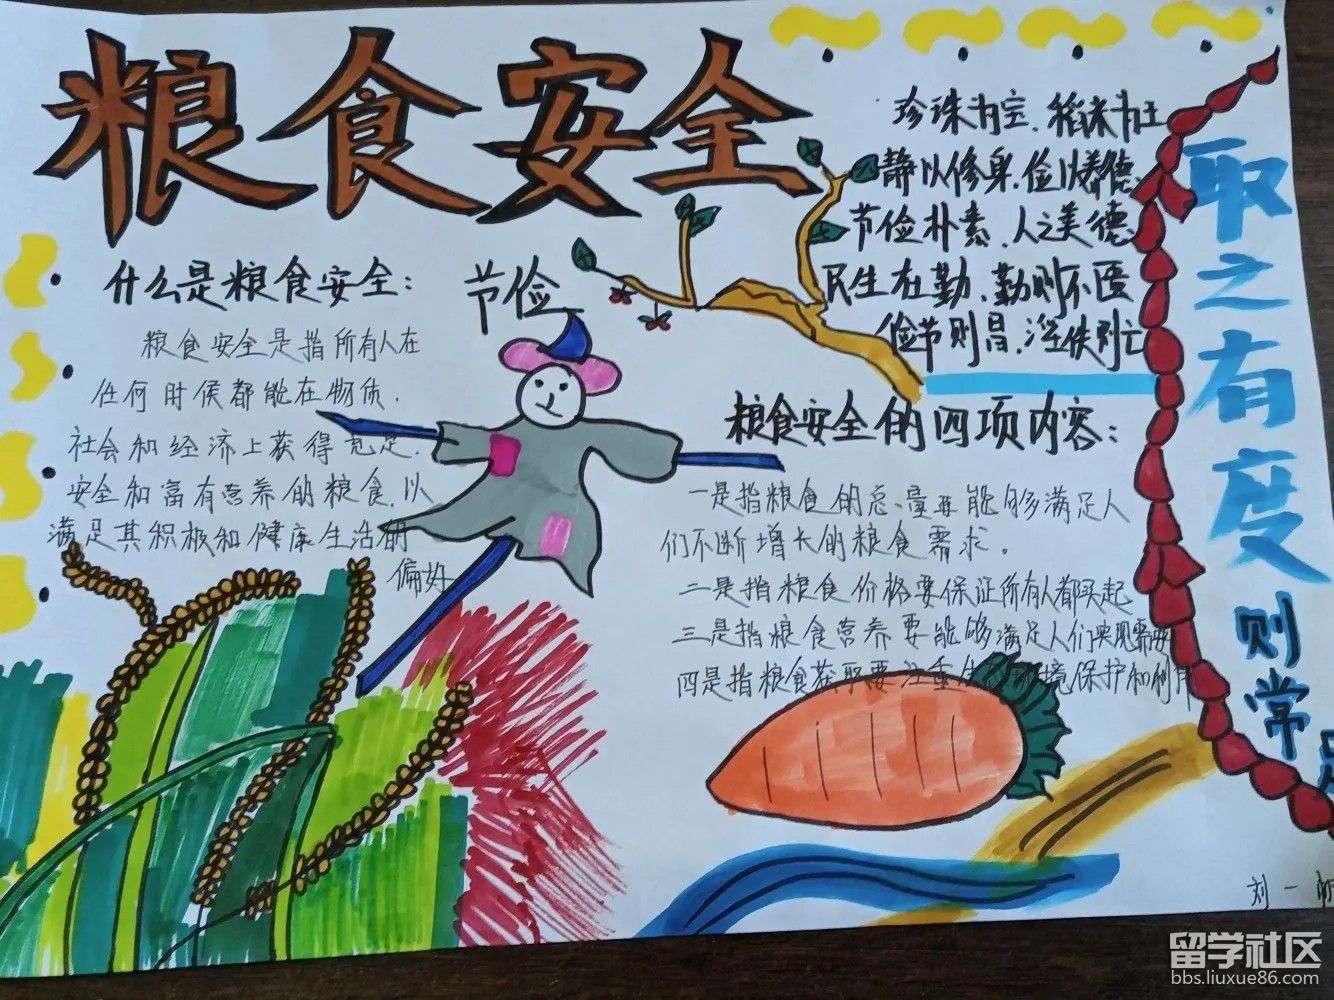 粮食安全
什么是粮食安全：
粮食安全是指所有人在
任何时候都能在物质.
社会和经济上获得充足.
安全和富有营养的粮食.以
满足其积极和健康生活的
偏好
节俭
珍珠为宝、稻米为王
静以修身.俭以养德、
节俭朴素、人之美德
民生在勤、勤则不匮
俭节则昌、淫佚则亡
粮食安全的四项内容：
一是指粮食的总量要能够满足人
们不断增长的粮食需求。
二是指粮食价格要保证所有人都买起
三是指粮食营养要能够满足人们实现需要
四是指粮食获取要注重生态环境保护和利用
取之有度
则常足
刘一
留学社区
bbs.liuxue86.com